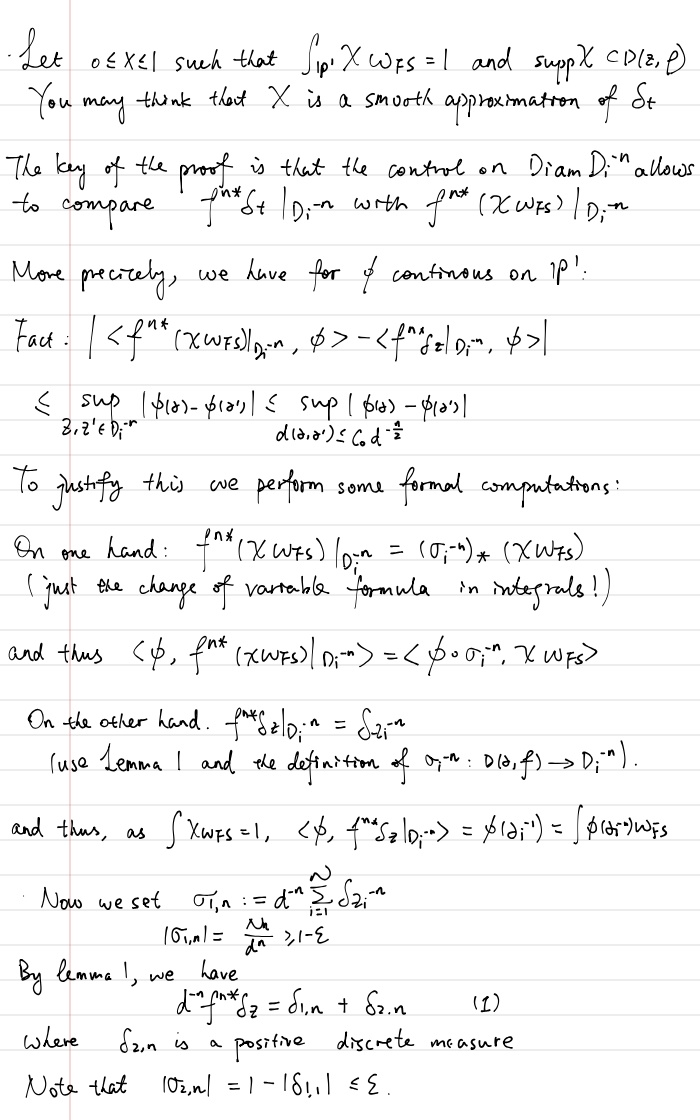 · Let 0 ≤ χ ≤ 1 such that ∫_{ℙ¹} χ ω_{FS} = 1 and supp χ ⊂ D(z, ρ)
You may think that χ is a smooth approximation of δ_t
The key of the proof is that the control on Diam D_i^{-n} allows
to compare f^{n*} δ_t |_{D_i^{-n}} with f^{n*} (χ ω_{FS}) |_{D_i^{-n}}
More precizely, we have for ϕ continous on ℙ¹:
Fact : | <f^{n*} (χ ω_{FS})|_{D_i^{-n}}, ϕ> - <f^{n*} δ_z|_{D_i^{-n}}, ϕ> |
≤ sup_{z, z' ∈ D_i^{-n}} |ϕ(z) - ϕ(z')| ≤ sup_{d(z,z') ≤ C_0 d^{-n/2}} | ϕ(z) - ϕ(z')|
To justify this we perform some formal computations:
On one hand: f^{n*} (χ ω_{FS}) |_{D_i^{-n}} = (σ_i^{-n})_* (χ ω_{FS})
( just the change of variable formula in integrals!)
and thus <ϕ, f^{n*} (χ ω_{FS}) | D_i^{-n}> = <ϕ ∘ σ_i^{-n}, χ ω_{FS}>
On the other hand. f^{n*} δ_z|_{D_i^{-n}} = δ_{z_i^{-n}}
(use Lemma 1 and the definition of σ_i^{-n} : D(z, ρ) → D_i^{-n}).
and thus, as ∫ χ ω_{FS} = 1, <ϕ, f^{n*} δ_z|_{D_i^{-n}}> = ϕ(z_i^{-1}) = ∫ ϕ(z_i^{-n}) ω_{FS}
· Now we set σ_{1,n} := d^{-n} Σ_{i=1}^{N} δ_{z_i^{-n}}
|σ_{1,n}| = N_n/d^n ≥ 1-ε
By lemma 1, we have
d^{-n} f^{n*} δ_z = δ_{1,n} + δ_{2,n} (1)
where δ_{2,n} is a positive discrete measure
Note that |σ_{2,n}| = 1 - |δ_{1,1}| ≤ ε.